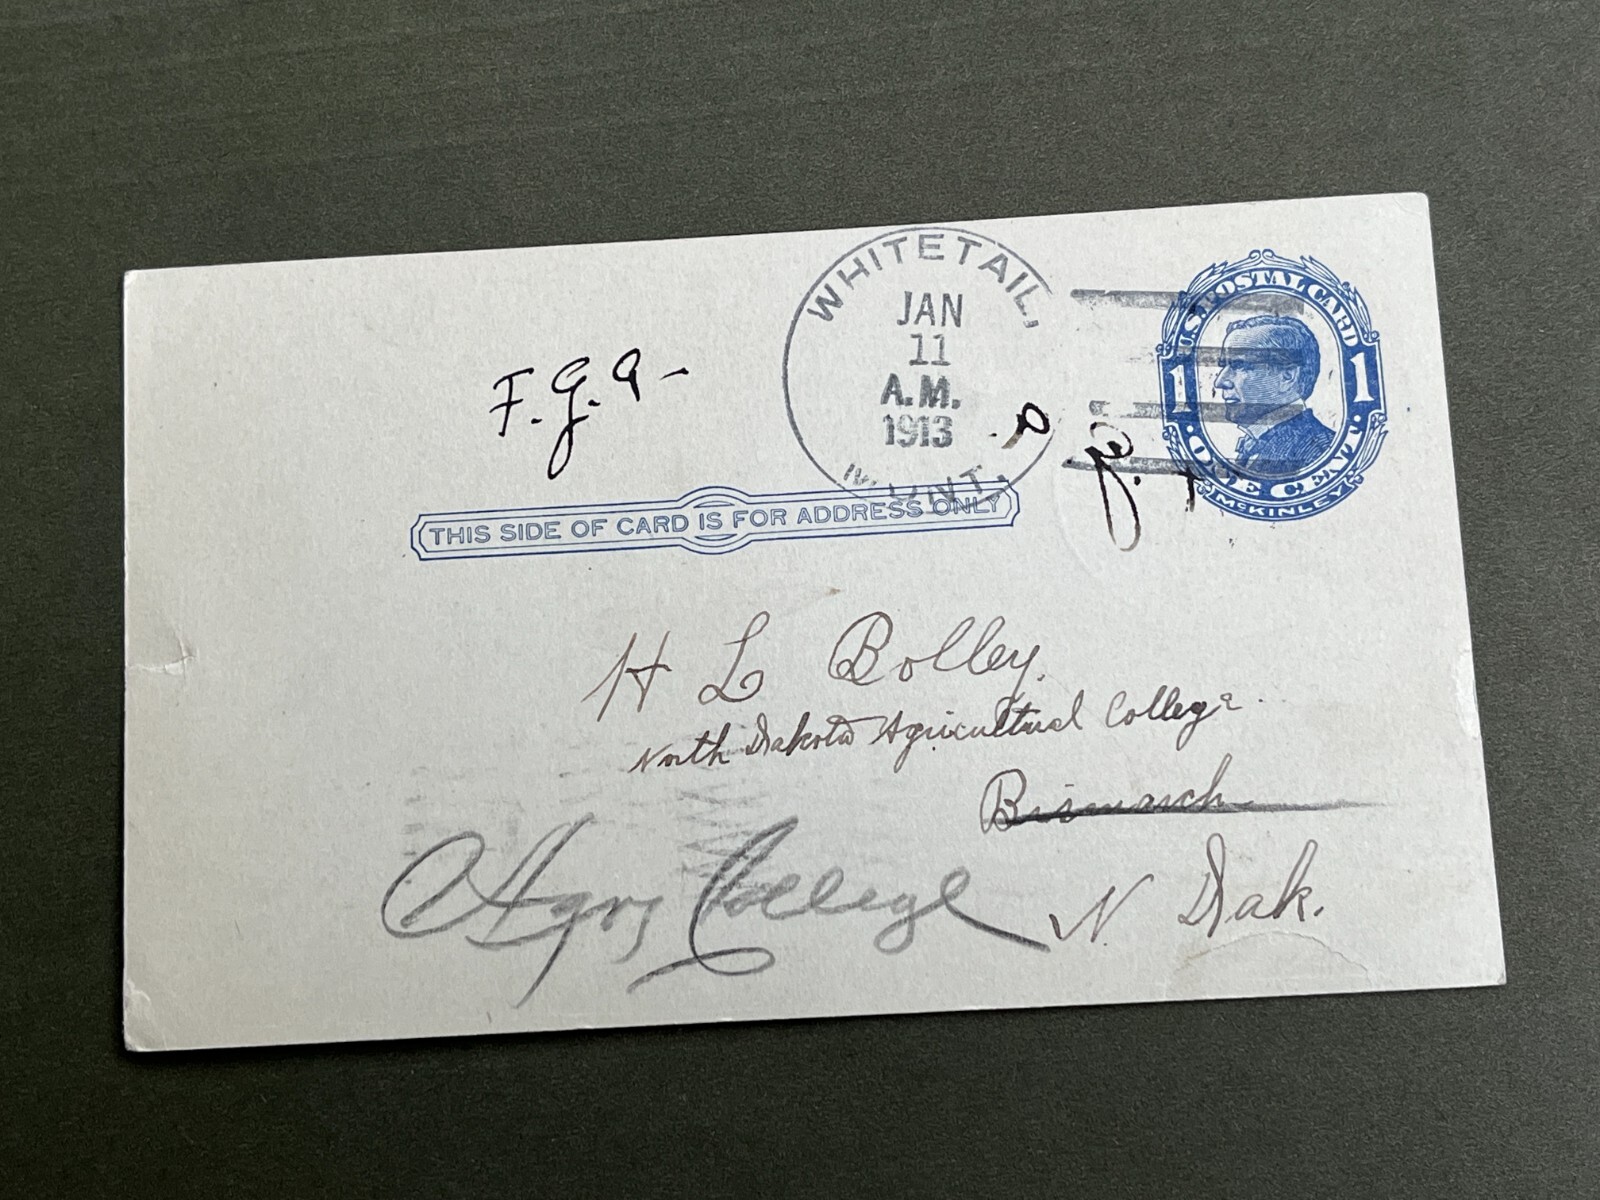 WHITETAIL,
JAN
11
A.M.
1913
MONT.
U.S. POSTAL CARD
1 1
ONE CENT.
McKINLEY
F. G. A-
THIS SIDE OF CARD IS FOR ADDRESS ONLY
H L Bolley.
North Dakota Agricultural College.
Bismarck
Agrs College
N. Dak.